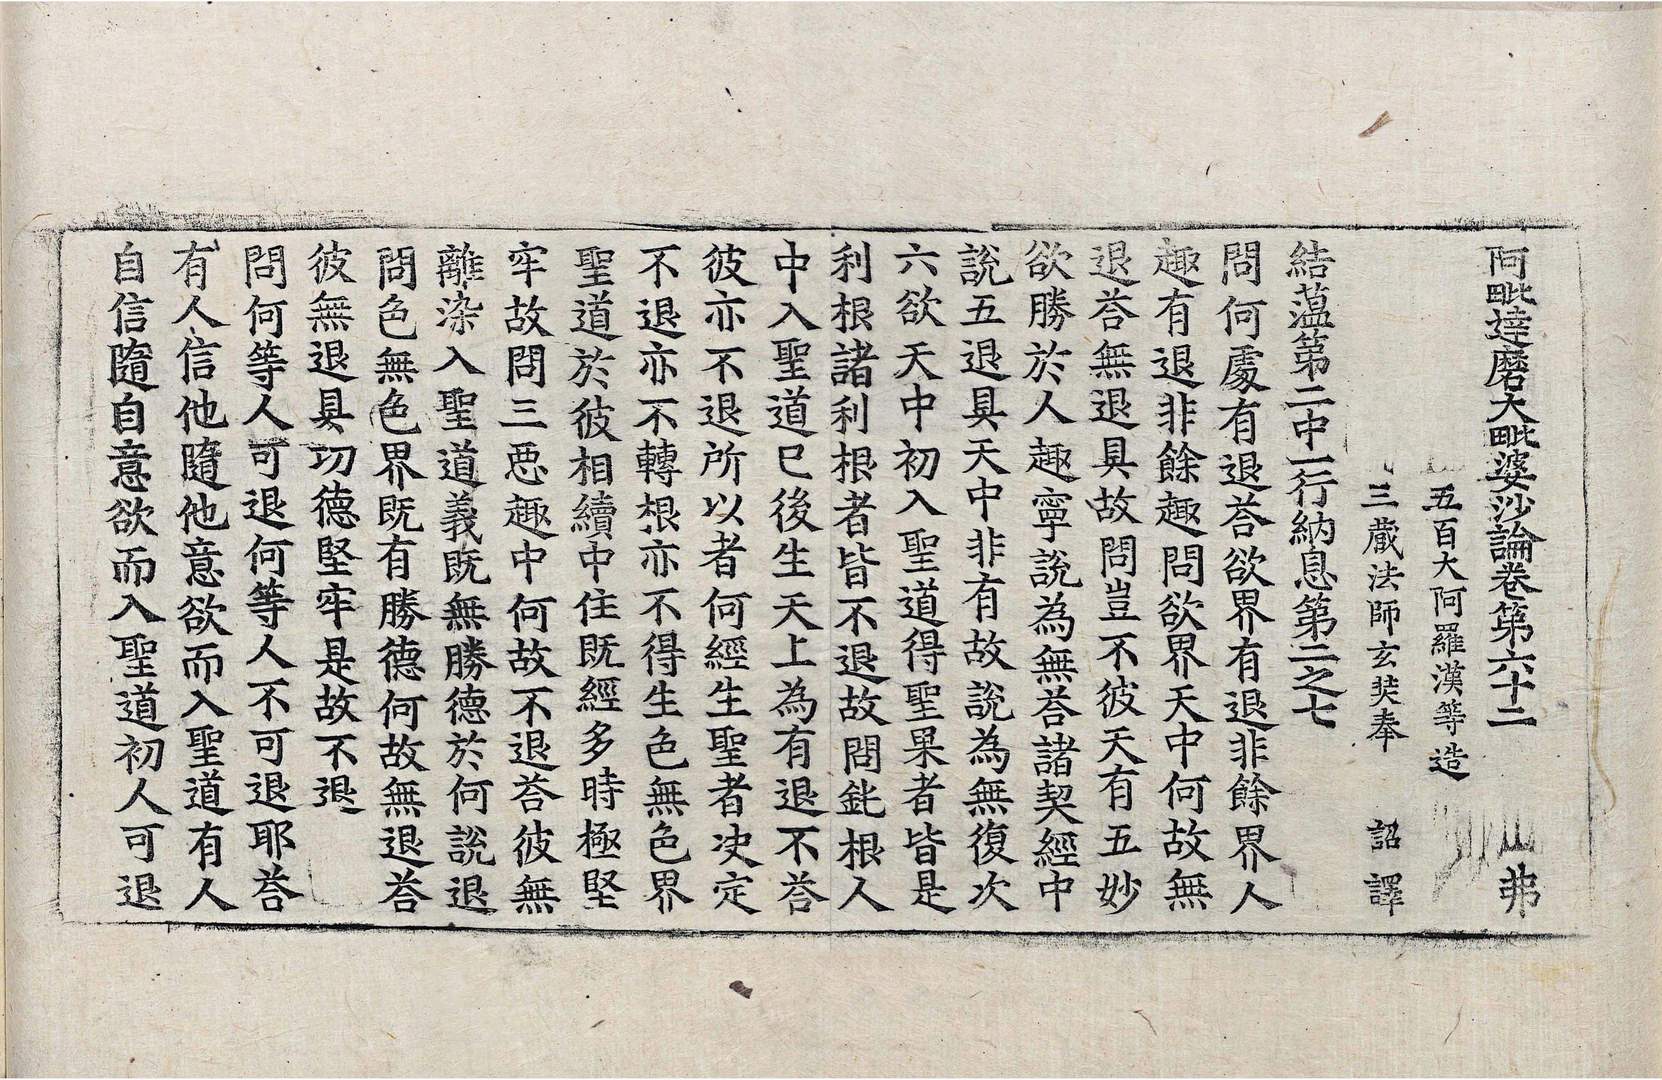 阿毗達磨大毗婆沙論卷第六十二　弗
五百大阿羅漢等造
三藏法師玄奘奉　詔譯
結蘊第二中一行納息第二之七
問何處有退荅欲界有退非餘界人
趣有退非餘趣問欲界天中何故無
退荅無退具故問豈不彼天有五妙
欲勝於人趣寧說為無荅諸契經中
說五退具天中非有故說為無復次
六欲天中初入聖道得聖果者皆是
利根諸利根者皆不退故問鈍根人
中入聖道已後生天上為有退不荅
彼亦不退所以者何經生聖者決定
不退亦不轉根亦不得生色無色界
聖道於彼相續中住既經多時極堅
牢故問三惡趣中何故不退荅彼無
離染入聖道義既無勝德於何說退
問色無色界既有勝德何故無退荅
彼無退具功德堅牢是故不退
問何等人可退何等人不可退耶荅
有人信他隨他意欲而入聖道有人
自信隨自意欲而入聖道初人可退